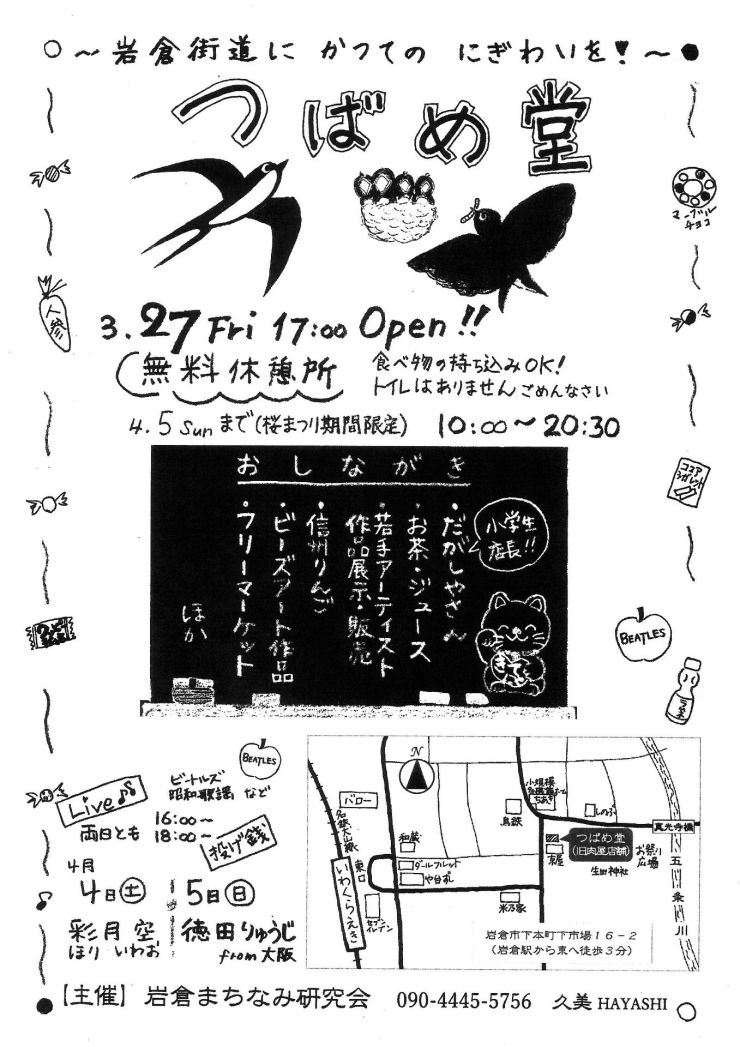 ～岩倉街道に かつての にぎわいを！～
つばめ堂
マーブルチョコ
人参
3.27 Fri 17:00 Open!!
無料休憩所
食べ物の持ち込みOK!
トイレはありません ごめんなさい
4.5 Sun まで(桜まつり期間限定) 10:00～20:30
ココアシガレット
おしながき
・だがしやさん
・お茶・ジュース
・若手アーティスト
作品展示・販売
・信州りんご
・ビーズアート作品
・フリーマーケット
ほか
小学生
店長!!
きてね
BEATLES
BEATLES
Live♪♪
ビートルズ
昭和歌謡 など
両日とも
16:00～
18:00～
投げ銭
4月
4日(土)
彩月空
ほり いわお
5日(日)
徳田りゅうじ
from 大阪
N
バロー
名鉄犬山線
いわくらえき
東口
和蔵
ダールフルット
や台ずし
セブンイレブン
鳥鉄
米乃家
小規模
しのぶ
京屋
つばめ堂
(旧肉屋店舗)
生田神社
お祭り広場
真光寺橋
五条川
岩倉市下本町下市場１６－２
（岩倉駅から東へ徒歩３分）
【主催】岩倉まちなみ研究会 090-4445-5756 久美 HAYASHI